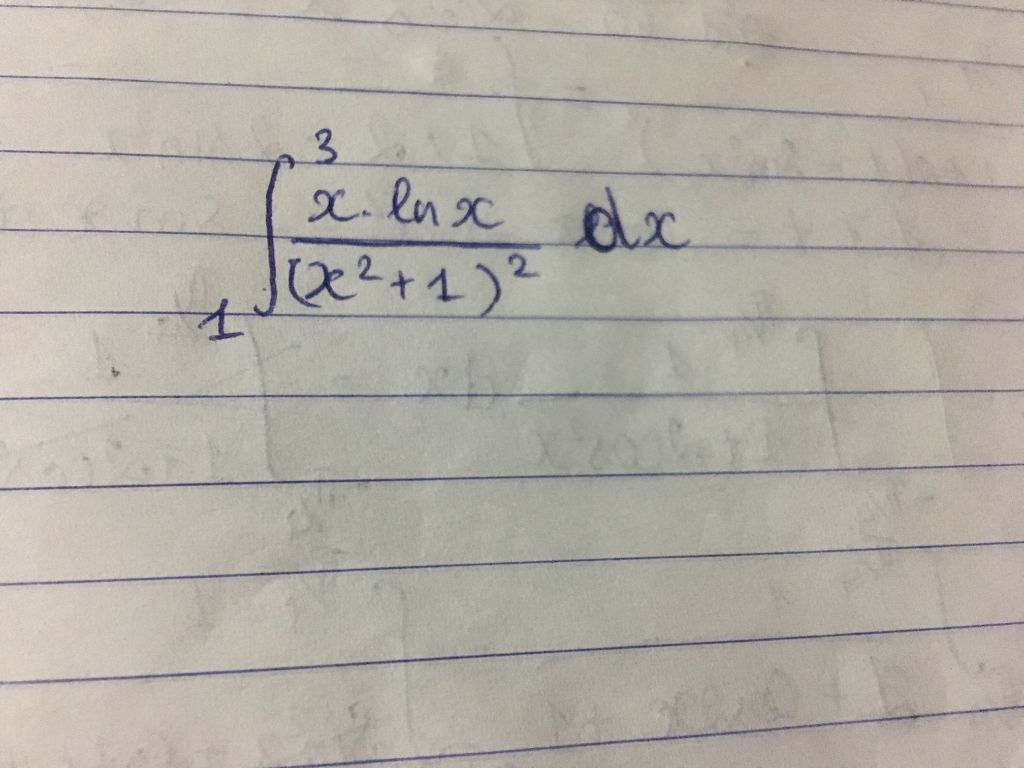 ∫₁³ x. ln x / (x² + 1)² dx